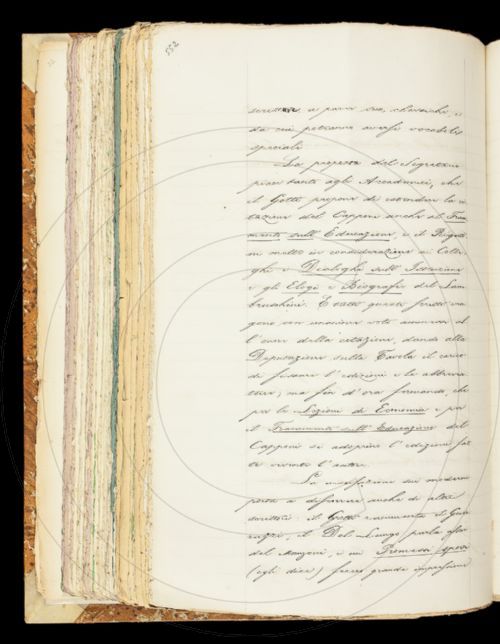 552
scrittore, a parer suo, classiche, e
da cui potranno aversi vocaboli
speciali
La proposta del Segretario
piace tanto agli Accademici, che
il Gotti propone di estendere la ci
tazione del Capponi anche al Fram
mento sull'Educazione, e il Riguti
ni mette in considerazione ai Colle
ghi i Dialoghi sull'Istruzione
e gli Elogi e Biografie del Lam
bruschini. E tutte queste proposte ven
gono con unanime voto ammesse al
l'onore della citazione, dando alla
Deputazione sulla Tavola il carico
di fissare l'edizioni e le abbrevia
ture; ma fin d'ora fermando, che
per le Lezioni di Economia e per
il Frammento sull'Educazione del
Capponi si adoperi l'edizione fat
ta vivente l'autore.
La
porta a discorrere anche di altri
scrittori: il Gotti rammenta il Guer
razzi, il Del Lungo parla
del Manzoni, e nei Promessi Sposi
(egli dice) fecero grande impressione